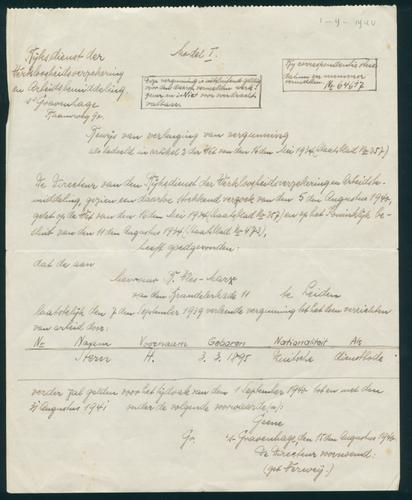 1-9-1940
Rijksdienst der
Werkloosheidsverzekering
en Arbeidsbemiddeling.
's Gravenhage
Model I.
Deze vergunning is uitsluitend geldig
voor den daarin vermelden werk-
gever en is niet voor overdracht
vatbaar.
Bij correspondentie steeds
datum en nummer
vermelden.
No 64617
Bewijs van verlenging van vergunning
als bedoeld in artikel 2 der Wet van den 16den Mei 1934 (Staatsblad No 257)
De Directeur van den Rijksdienst der Werkloosheidsverzekering en Arbeidsbe-
middeling, gezien een daartoe strekkend verzoek van den 5 den Augustus 1940,
gelet op de Wet van den 16den Mei 1934 (Staatsblad No 257) en op het Koninklijk be-
sluit van den 11 den Augustus 1934 (Staatsblad No 473),
heeft goedgevonden:
dat de aan
Mevrouw
van den Brandelerkade 11 te Leiden
laatstelijk den 7 den September 1939 verleende vergunning tot het doen verrichten
van arbeid door:
No Naam Voornaam Geboren Nationaliteit Als
Stern H. 3.3.1895 Duitsche dienstbode
verder zal gelden voor het tijdvak van den 1 September 1940 tot en met den
31 Augustus 1941 onder de volgende voorwaarde(n):
Geene
Gr. 's-Gravenhage, den 15 den Augustus 1940
De Directeur voornoemd: